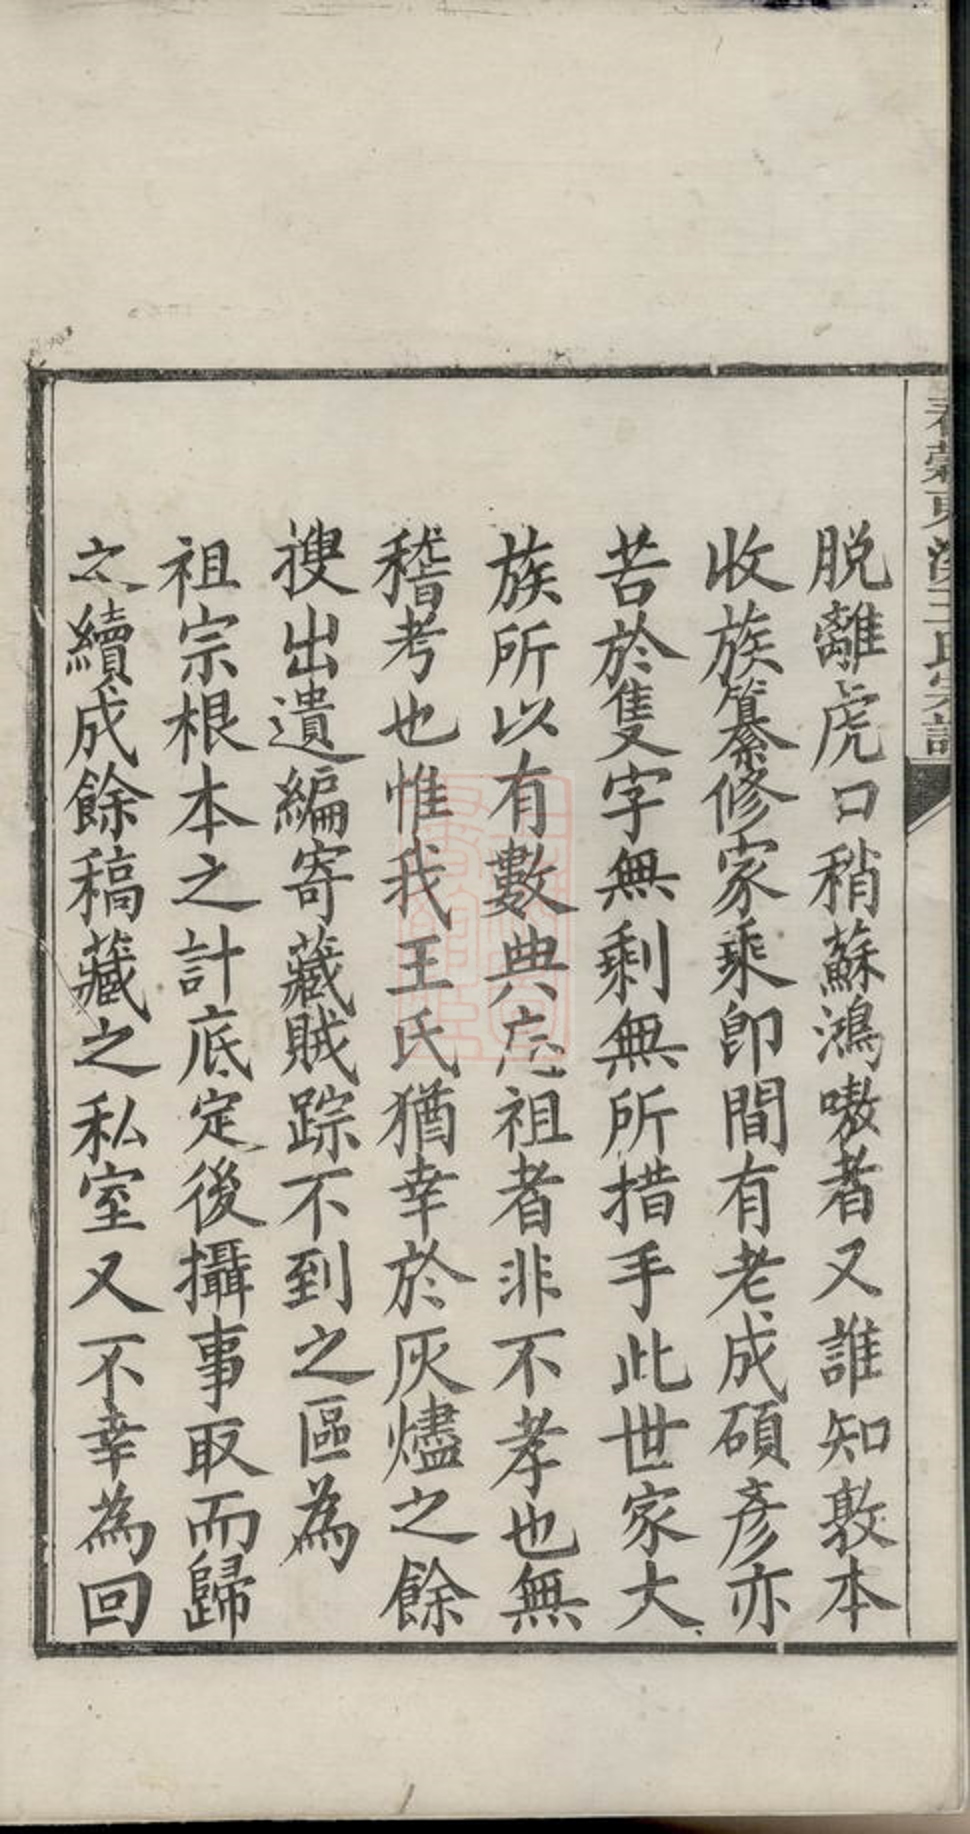 春穀東溪王氏宗譜
脱離虎口稍蘇鴻嗷者又誰知敦本
收族纂修家乘卽間有老成碩彥亦
苦於隻字無剩無所措手此世家大
族所以有數典忘祖者非不孝也無
稽考也惟我王氏猶幸於灰燼之餘
搜出遺編寄藏賊踪不到之區為
祖宗根本之計底定後攝事取而歸
之續成餘稿藏之私室又不幸為回